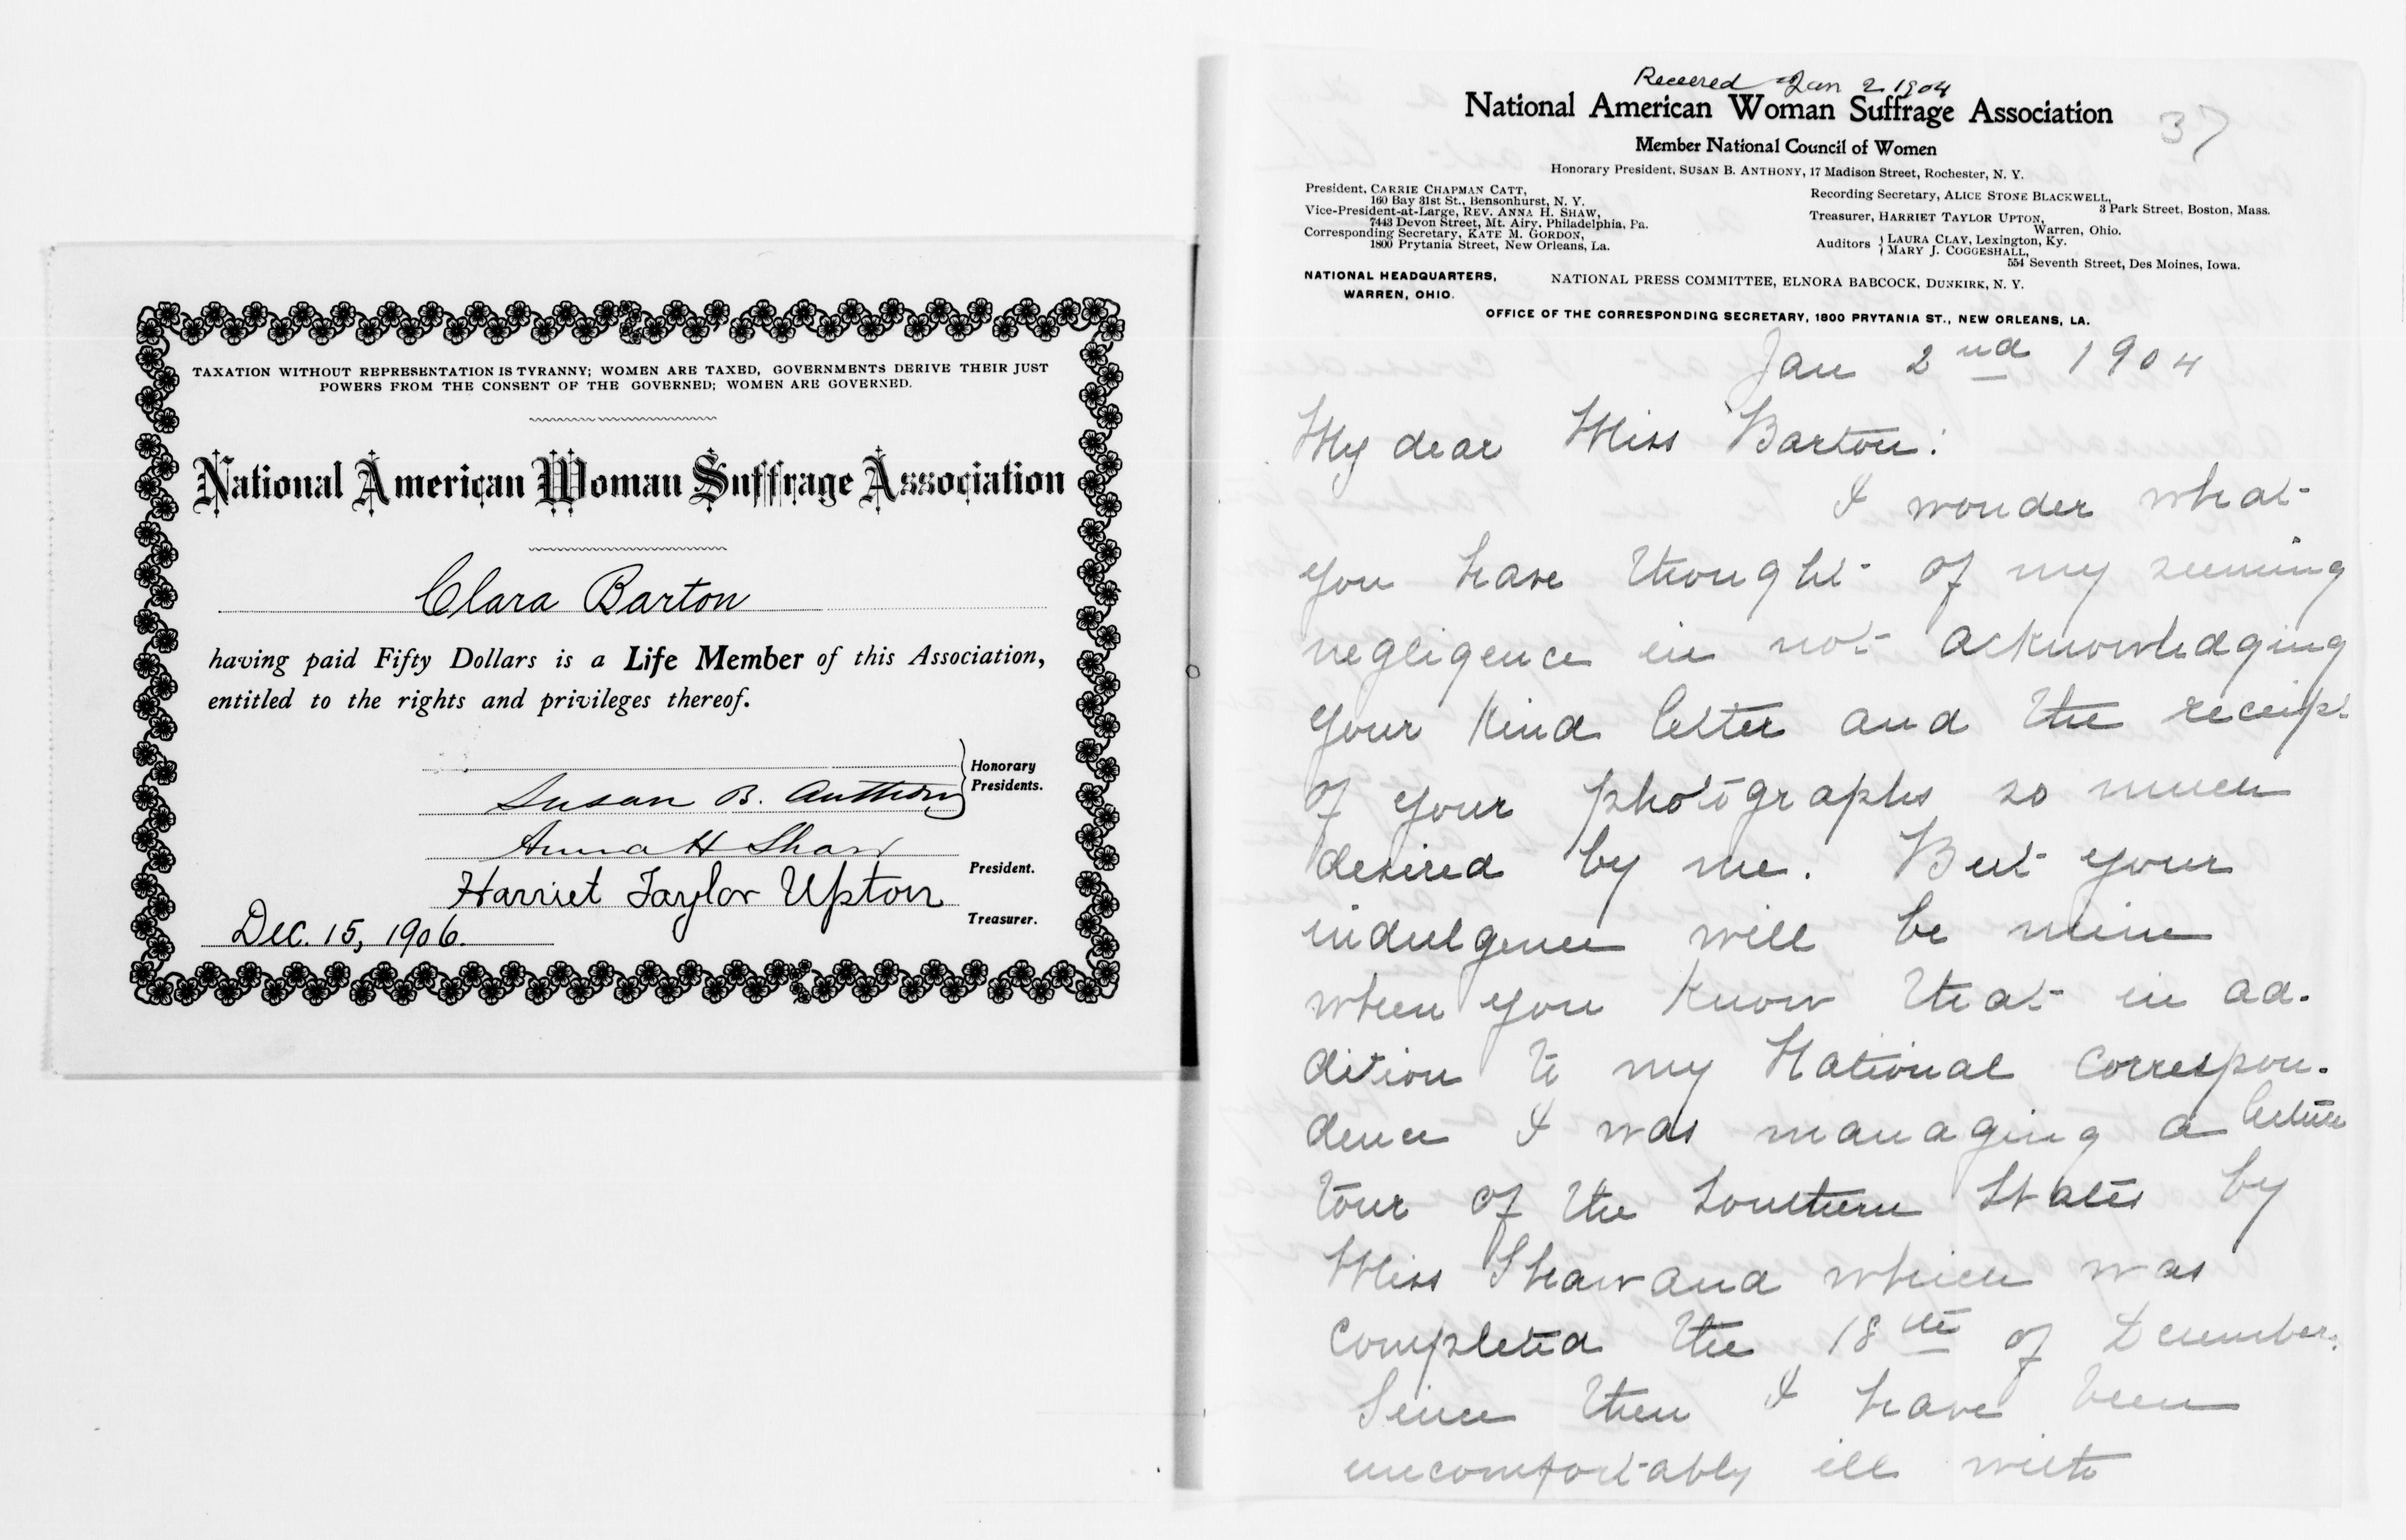 TAXATION WITHOUT REPRESENTATION IS TYRANNY; WOMEN ARE TAXED, GOVERNMENTS DERIVE THEIR JUST
POWERS FROM THE CONSENT OF THE GOVERNED; WOMEN ARE GOVERNED.
National American Woman Suffrage Association
Clara Barton
having paid Fifty Dollars is a Life Member of this Association,
entitled to the rights and privileges thereof.
Honorary
Presidents.
Susan B. Anthony
Anna H Shaw
President.
Harriet Taylor Upton
Treasurer.
Dec. 15, 1906.
Received Jan 2 1904
National American Woman Suffrage Association
37
Member National Council of Women
Honorary President, SUSAN B. ANTHONY, 17 Madison Street, Rochester, N. Y.
President, CARRIE CHAPMAN CATT,
160 Bay 31st St., Bensonhurst, N. Y.
Vice-President-at-Large, REV. ANNA H. SHAW,
7443 Devon Street, Mt. Airy, Philadelphia, Pa.
Corresponding Secretary, KATE M. GORDON,
1800 Prytania Street, New Orleans, La.
Recording Secretary, ALICE STONE BLACKWELL,
3 Park Street, Boston, Mass.
Treasurer, HARRIET TAYLOR UPTON,
Warren, Ohio.
Auditors { LAURA CLAY, Lexington, Ky.
{ MARY J. COGGESHALL,
554 Seventh Street, Des Moines, Iowa.
NATIONAL HEADQUARTERS,
WARREN, OHIO.
NATIONAL PRESS COMMITTEE, ELNORA BABCOCK, DUNKIRK, N. Y.
OFFICE OF THE CORRESPONDING SECRETARY, 1800 PRYTANIA ST., NEW ORLEANS, LA.
Jan 2nd 1904
My dear Miss Barton:
I wonder what
you have thought of my seeming
negligence in not acknowledging
your kind letter and the receipt
of your photographs so much
desired by me. But your
indulgence will be mine
when you know that in ad-
dition to my National correspon-
dence I was managing a lecture
tour of the Southern States by
Miss Shaw and which was
completed the 18th of December.
Since then I have been
uncomfortably ill with